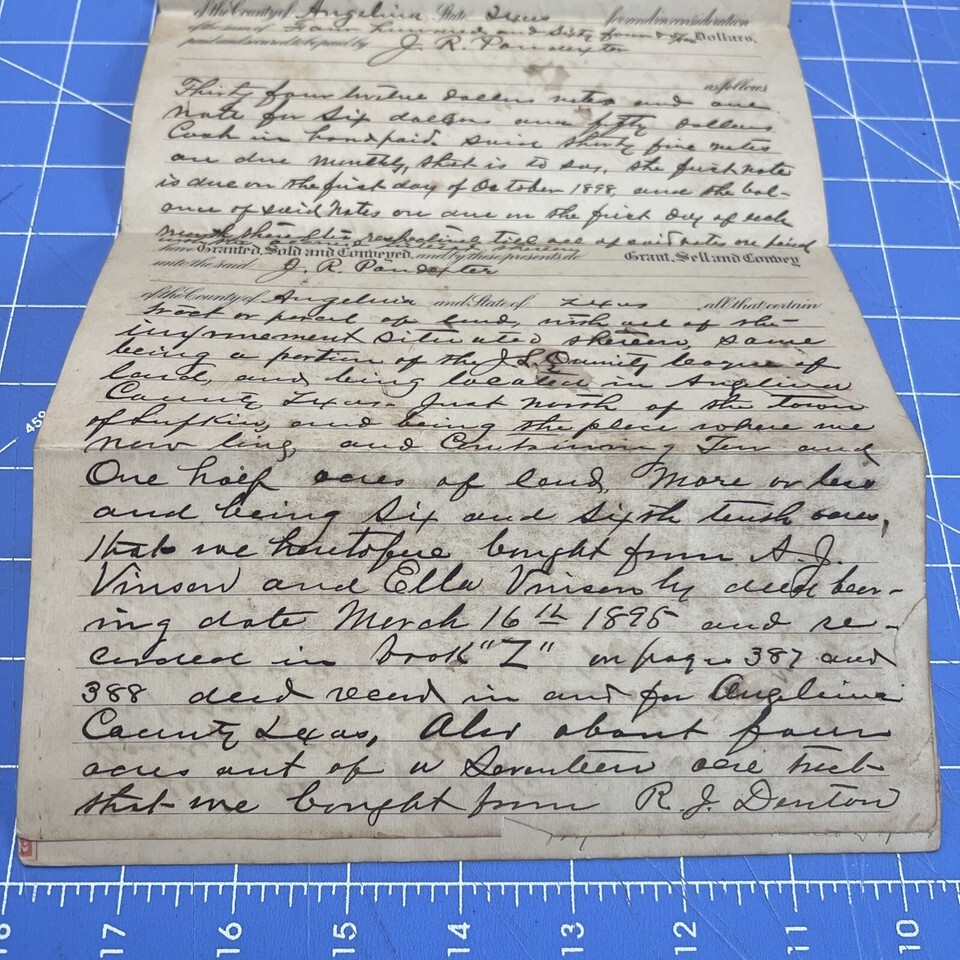 of the County of Angelina State Texas for and in consideration
of the sum of Four hundred and Sixty four & Dollars,
paid and secured to be paid by J. R. Poindexter
as follows
Thirty four twelve dollars notes and one
note for Six dollars and fifty Dollars
Cash in hand paid. Said thirty five notes
are due monthly, that is to say, the first note
is due on the first day of October 1898 and the bal-
ance of said notes are due on the first day of each
month respectively till all of said notes are paid
have Granted, Sold and Conveyed, and by these presents do Grant, Sell and Convey
unto the said J. R. Poindexter
of the County of Angelina and State of Texas all that certain
tract or parcel of land, with all of the
improvement situated thereon, same
being a portion of the J. L. Quinalty league of
land, and being located in Angelina
County Texas. Just north of the town
of Lufkin, and being the place where we
now live, and Containing Ten and
One half acres of land, More or less
and being Six and Sixth tenth acres,
that we heretofore bought from A. J.
Vinson and Ella Vinson by deed bear-
ing date March 16th 1895 and re-
corded in book "Z" on pages 387 and
388 deed record in and for Angelina
County Texas, Also about four
acres out of a Seventeen acre tract
that we bought from R. J. Denton
18 17 16 15 14 13 12 11 10
45°